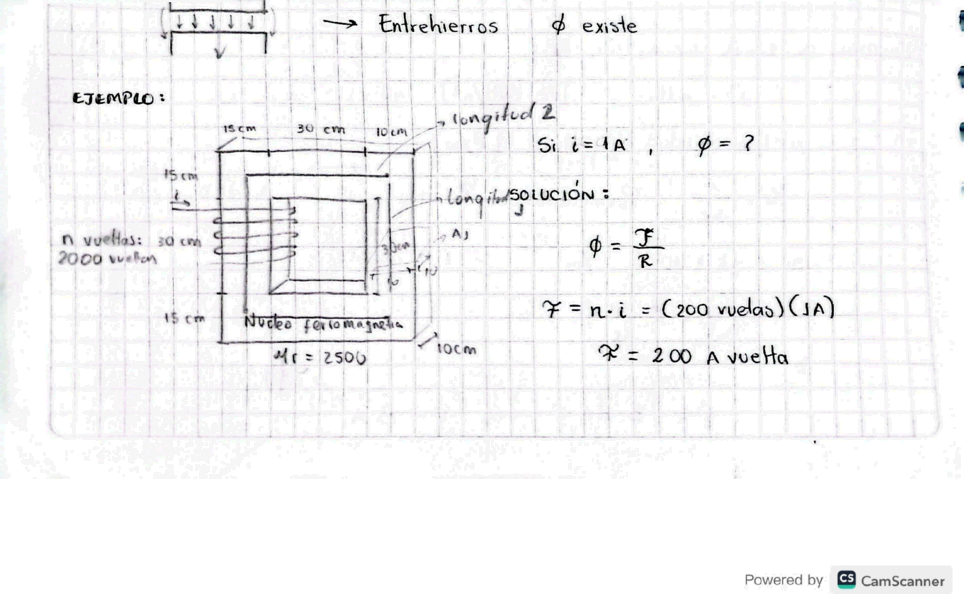 → Entrehierros ϕ existe
EJEMPLO:
15 cm 30 cm 10 cm
longitud 2
Si i = 1A , ϕ = ?
15 cm
i
longitud 1
SOLUCIÓN:
n vueltas: 30 cm
2000 vueltas
30cm
A1
ϕ = ℱ / R
ℱ = n · i = (200 vueltas) (1A)
15 cm
Nucleo ferromagnetico
10cm
Mr = 2500
ℱ = 200 A vuelta
Powered by CS CamScanner